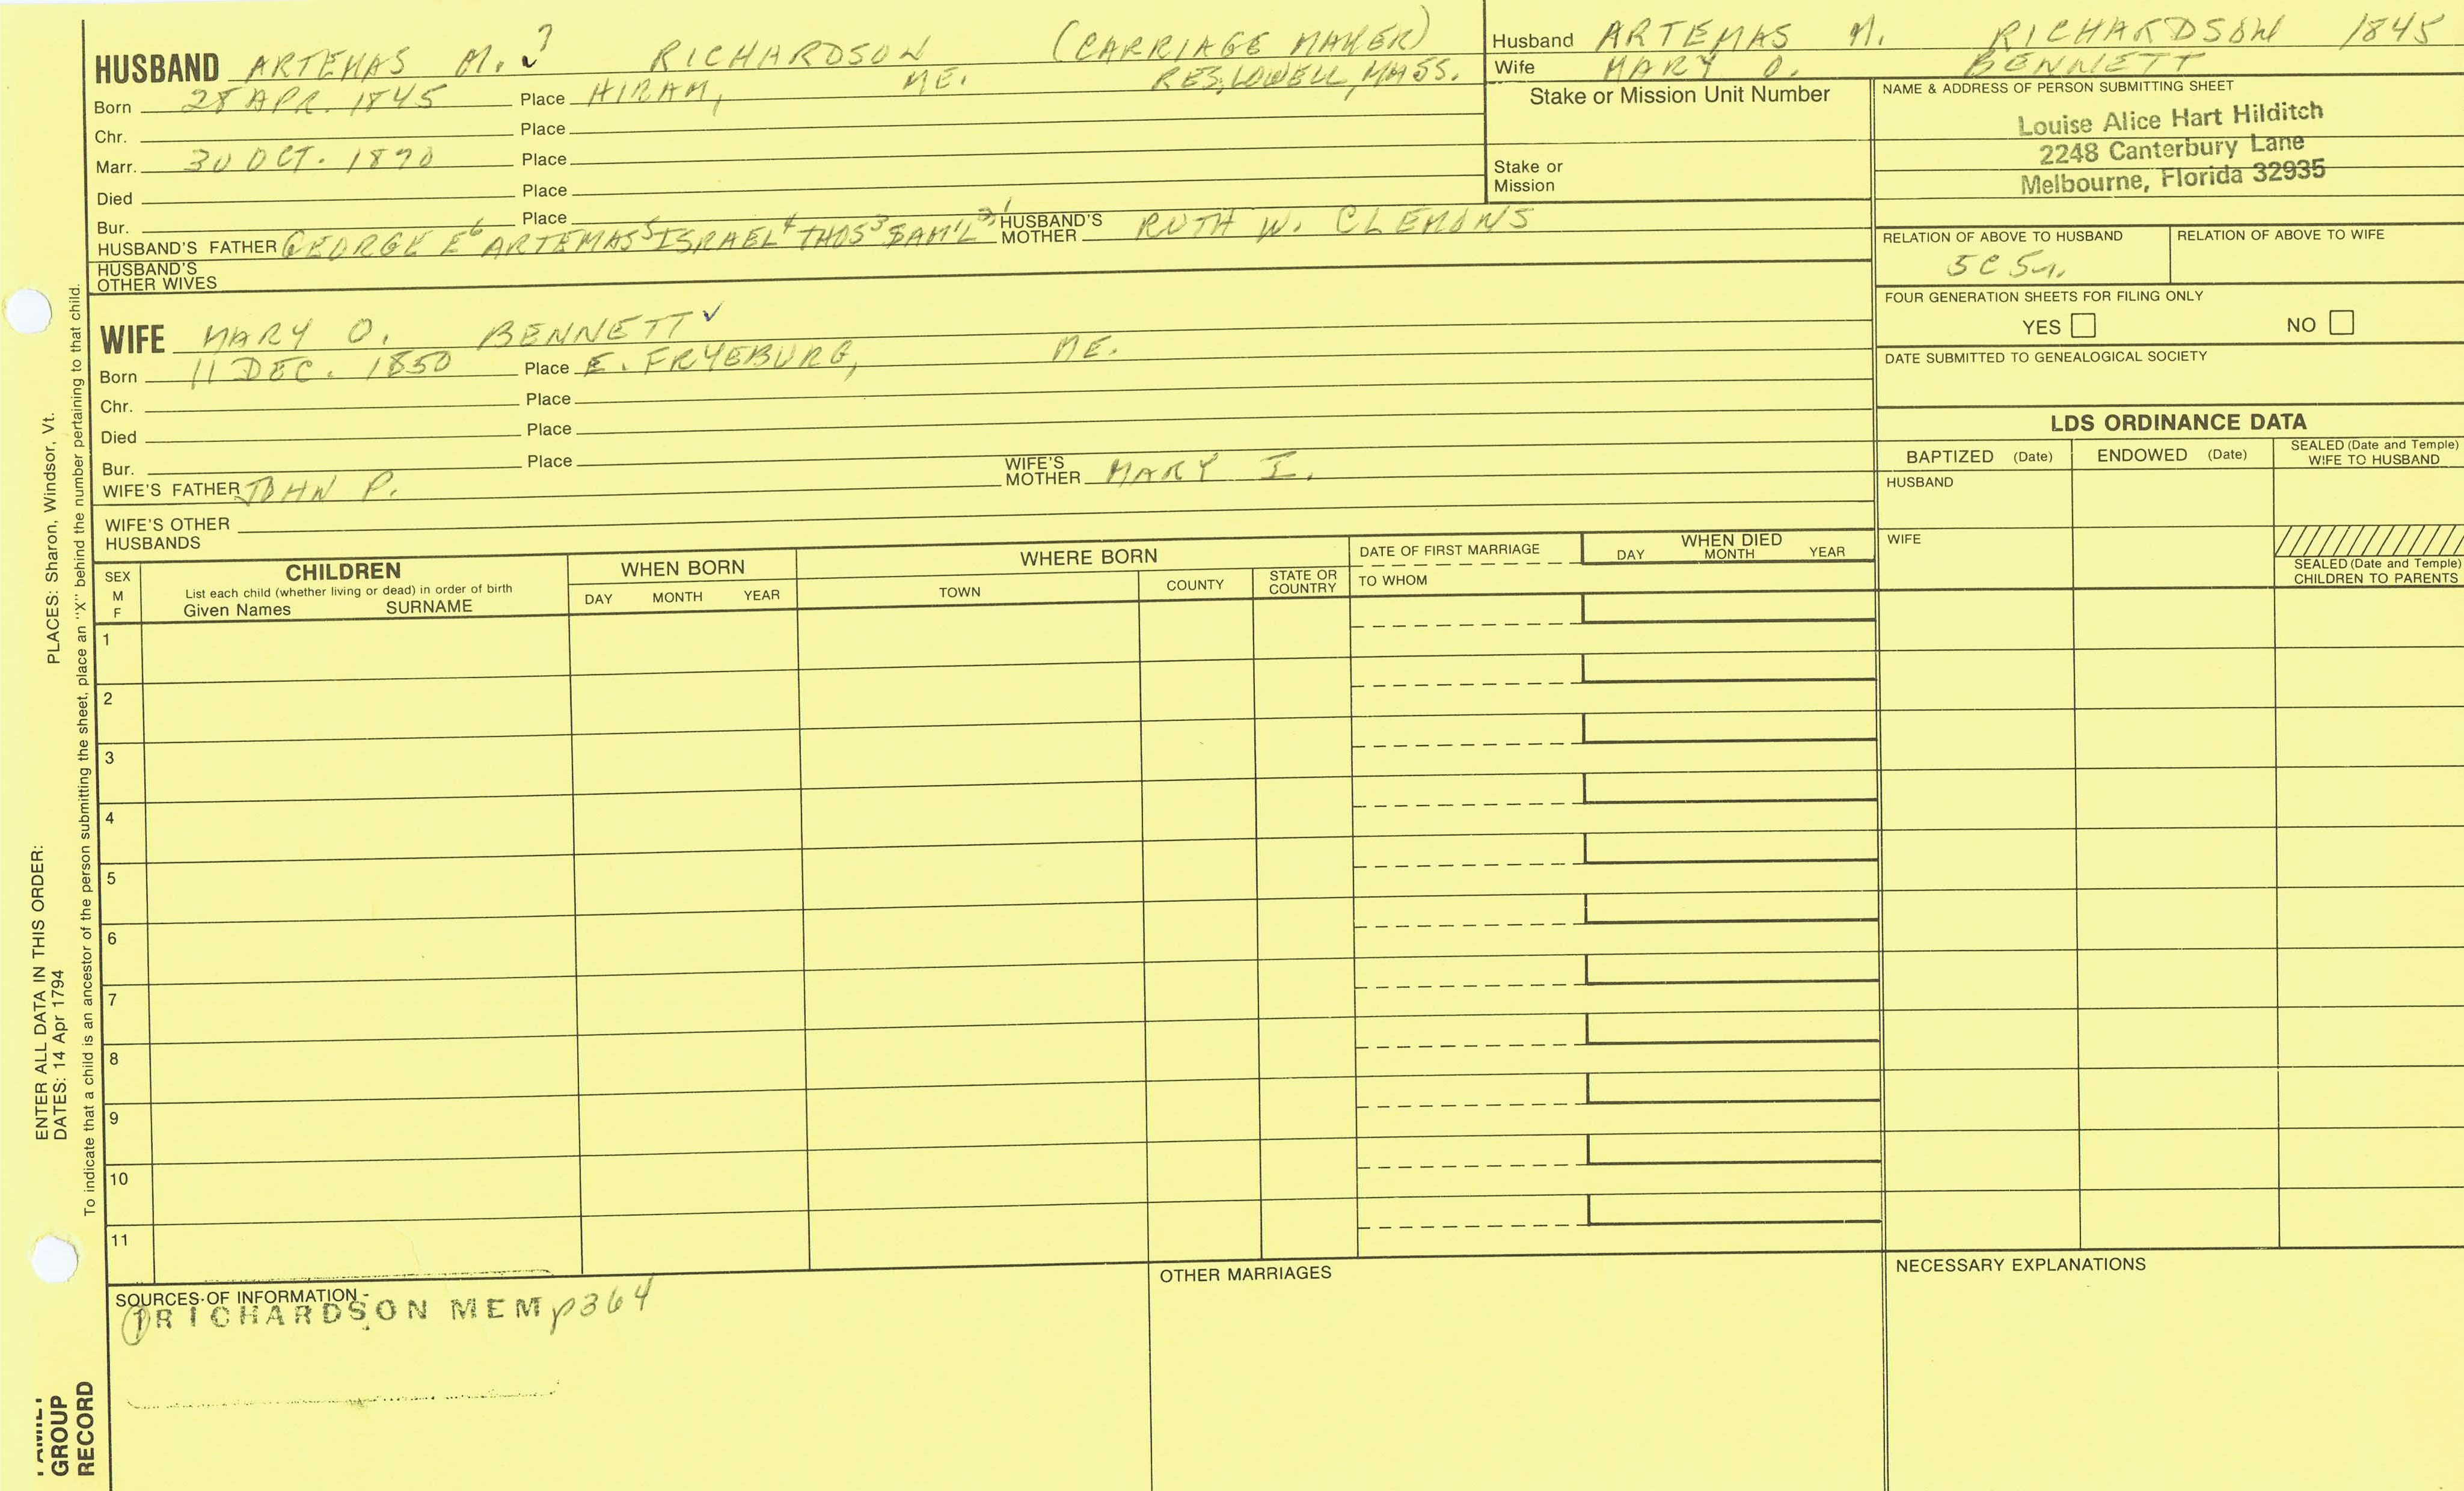 HUSBAND ARTEMAS M.? RICHARDSON (CARRIAGE MAKER)
Born 28 APR. 1845 Place HIRAM, ME. RES. LOWELL, MASS.
Chr. Place
Marr. 30 OCT. 1870 Place
Died Place
Bur. Place
HUSBAND'S FATHER GEORGE E6 ARTEMAS5 ISRAEL4 THOS3 SAM'L2,1 HUSBAND'S MOTHER RUTH W. CLEMONS
HUSBAND'S OTHER WIVES
WIFE MARY O. BENNETT ✓
Born 11 DEC. 1850 Place E. FRYEBURG, ME.
Chr. Place
Died Place
Bur. Place
WIFE'S FATHER JOHN P. WIFE'S MOTHER MARY I.
WIFE'S OTHER HUSBANDS
Husband ARTEMAS M. RICHARDSON 1845
Wife MARY O. BENNETT
Stake or Mission Unit Number
Stake or Mission
NAME & ADDRESS OF PERSON SUBMITTING SHEET
Louise Alice Hart Hilditch
2248 Canterbury Lane
Melbourne, Florida 32935
RELATION OF ABOVE TO HUSBAND RELATION OF ABOVE TO WIFE
FOUR GENERATION SHEETS FOR FILING ONLY
YES NO
DATE SUBMITTED TO GENEALOGICAL SOCIETY
LDS ORDINANCE DATA
BAPTIZED (Date) ENDOWED (Date) SEALED (Date and Temple) WIFE TO HUSBAND
HUSBAND
WIFE
SEALED (Date and Temple) CHILDREN TO PARENTS
SEX M F
CHILDREN
List each child (whether living or dead) in order of birth
Given Names SURNAME
WHEN BORN
DAY MONTH YEAR
WHERE BORN
TOWN COUNTY STATE OR COUNTRY
DATE OF FIRST MARRIAGE
TO WHOM
WHEN DIED
DAY MONTH YEAR
1
2
3
4
5
6
7
8
9
10
11
SOURCES OF INFORMATION
1 RICHARDSON MEM p364
OTHER MARRIAGES
NECESSARY EXPLANATIONS
ENTER ALL DATA IN THIS ORDER:
DATES: 14 Apr 1794 PLACES: Sharon, Windsor, Vt.
To indicate that a child is an ancestor of the person submitting the sheet, place an "X" behind the number pertaining to that child.
FAMILY
GROUP
RECORD